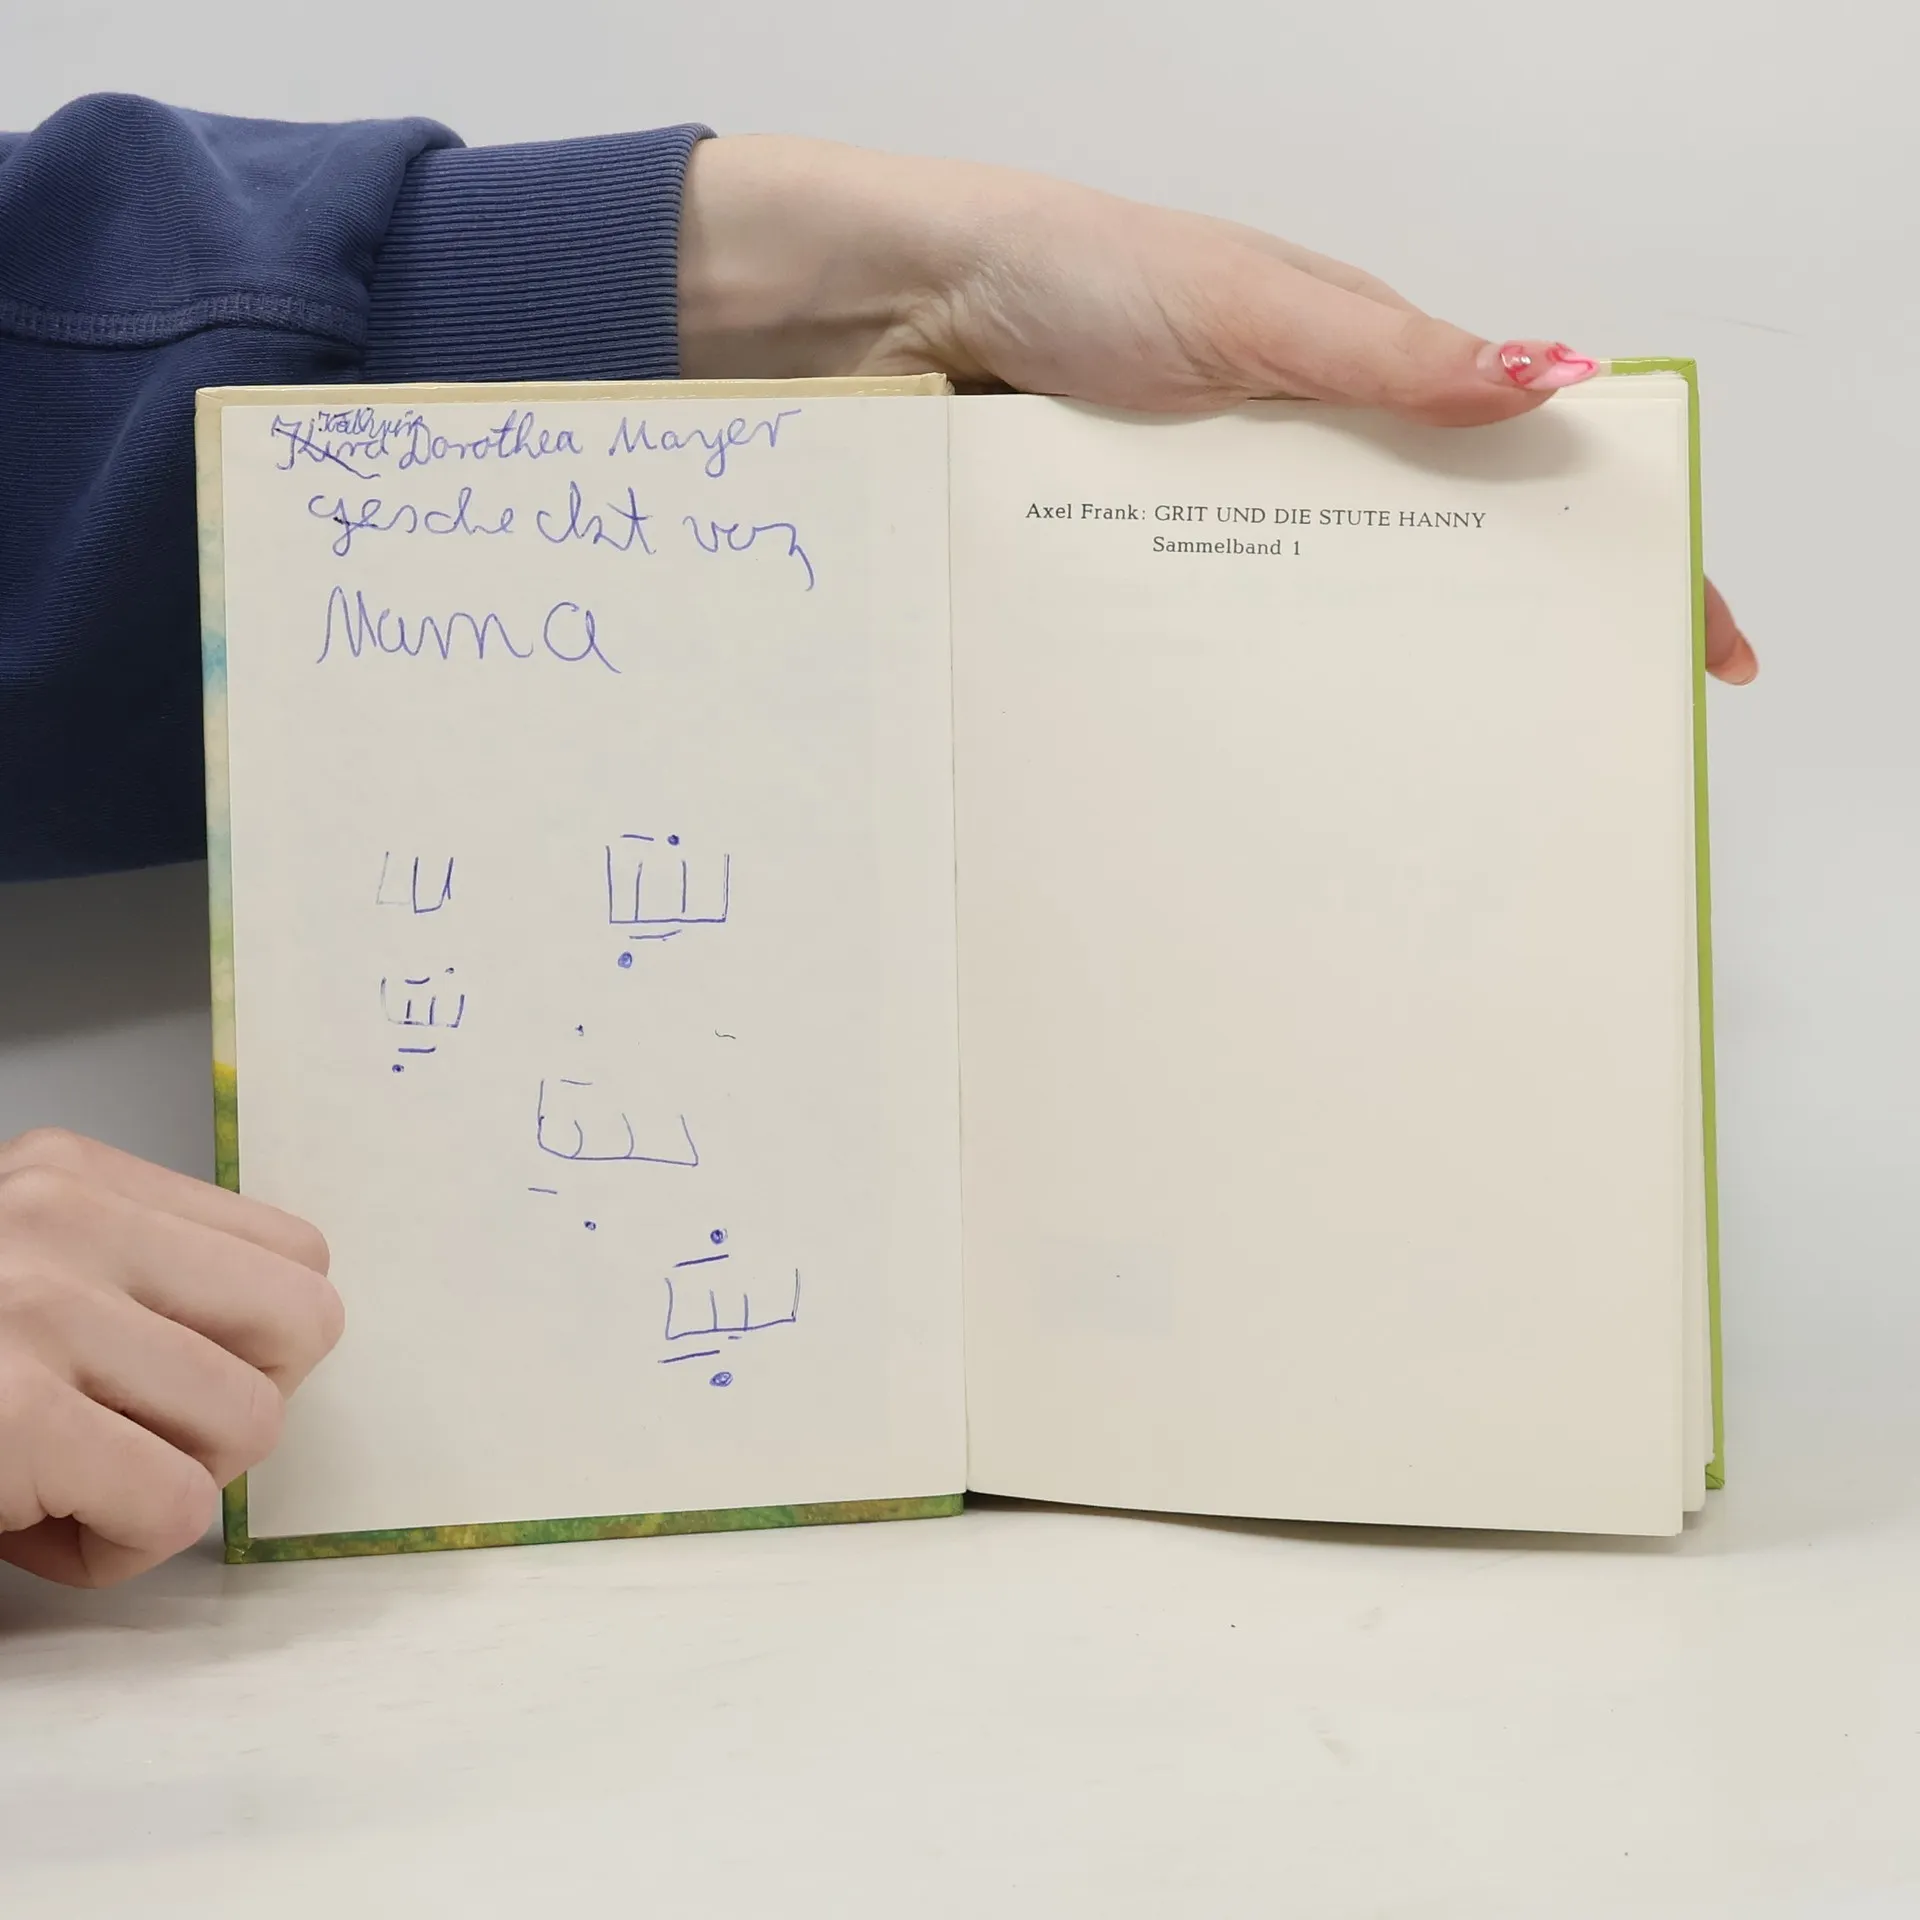 Kathrin
Kira Dorothea Mayer
gescheckt von
Mama
Axel Frank: GRIT UND DIE STUTE HANNY
Sammelband 1